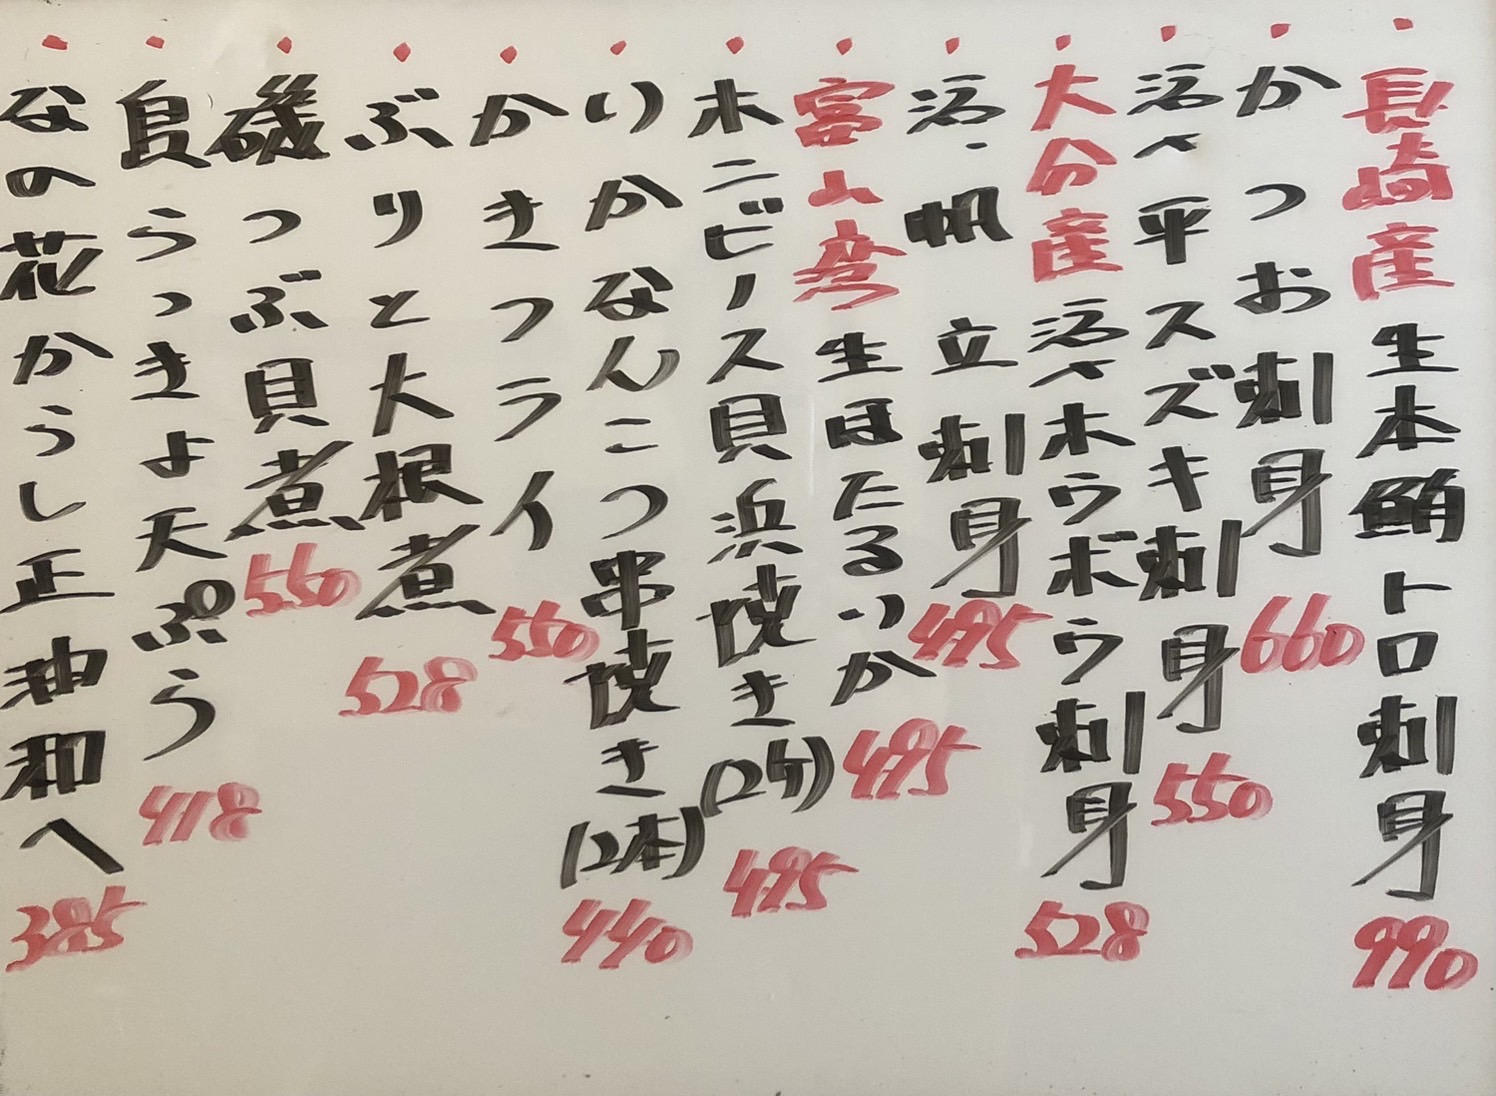 長崎産 生本鮪トロ刺身 990
かつお刺身 660
活〆平スズキ刺身 550
大分産 活〆ホウボウ刺身 528
活・帆立刺身 495
富山湾 生ほたるいか 495
ホンビノス貝浜焼き(2ケ) 495
いかなんこつ串焼き(2本) 440
かきフライ 550
ぶりと大根煮 528
磯つぶ貝煮 550
島らっきょ天ぷら 418
なの花からし正油和へ 385